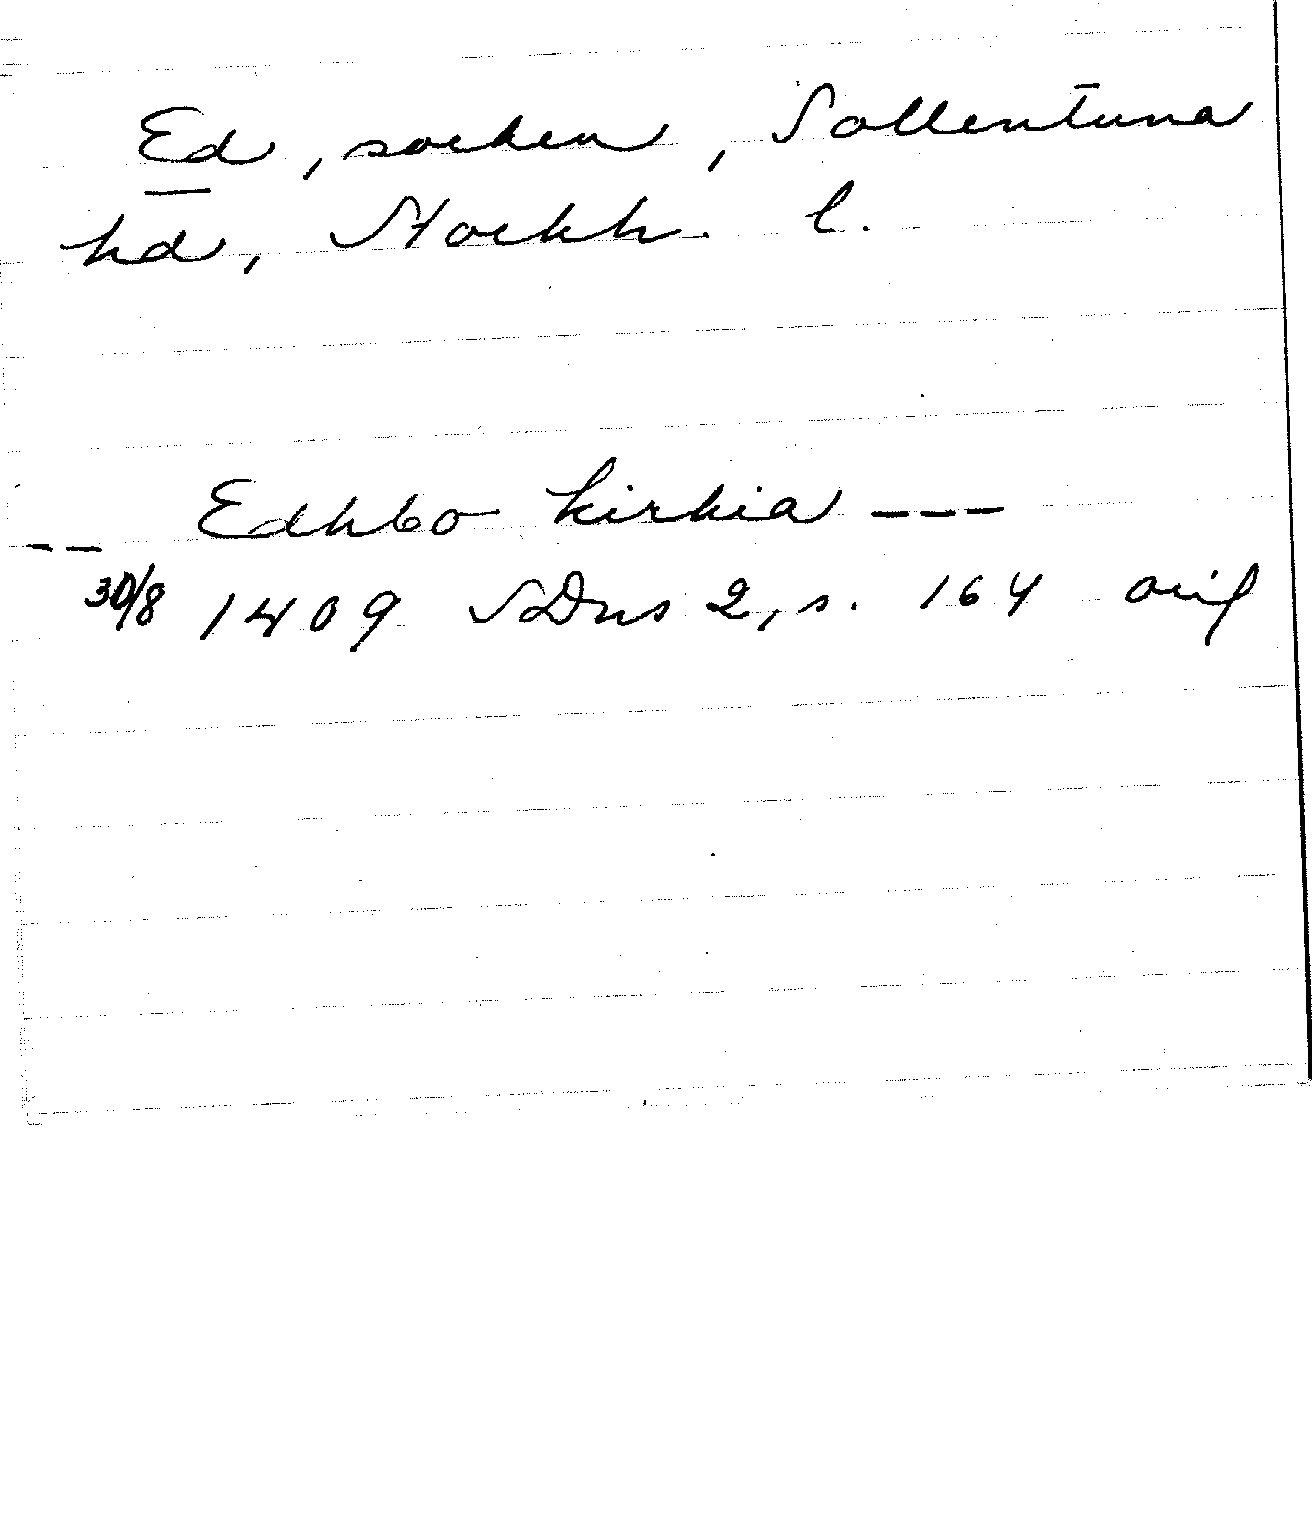 Ed, socken, Sollentuna
hd, Stockh. l.
-- Edhbo kirkia ---
30/8 1409 SDns 2, s. 164 orig